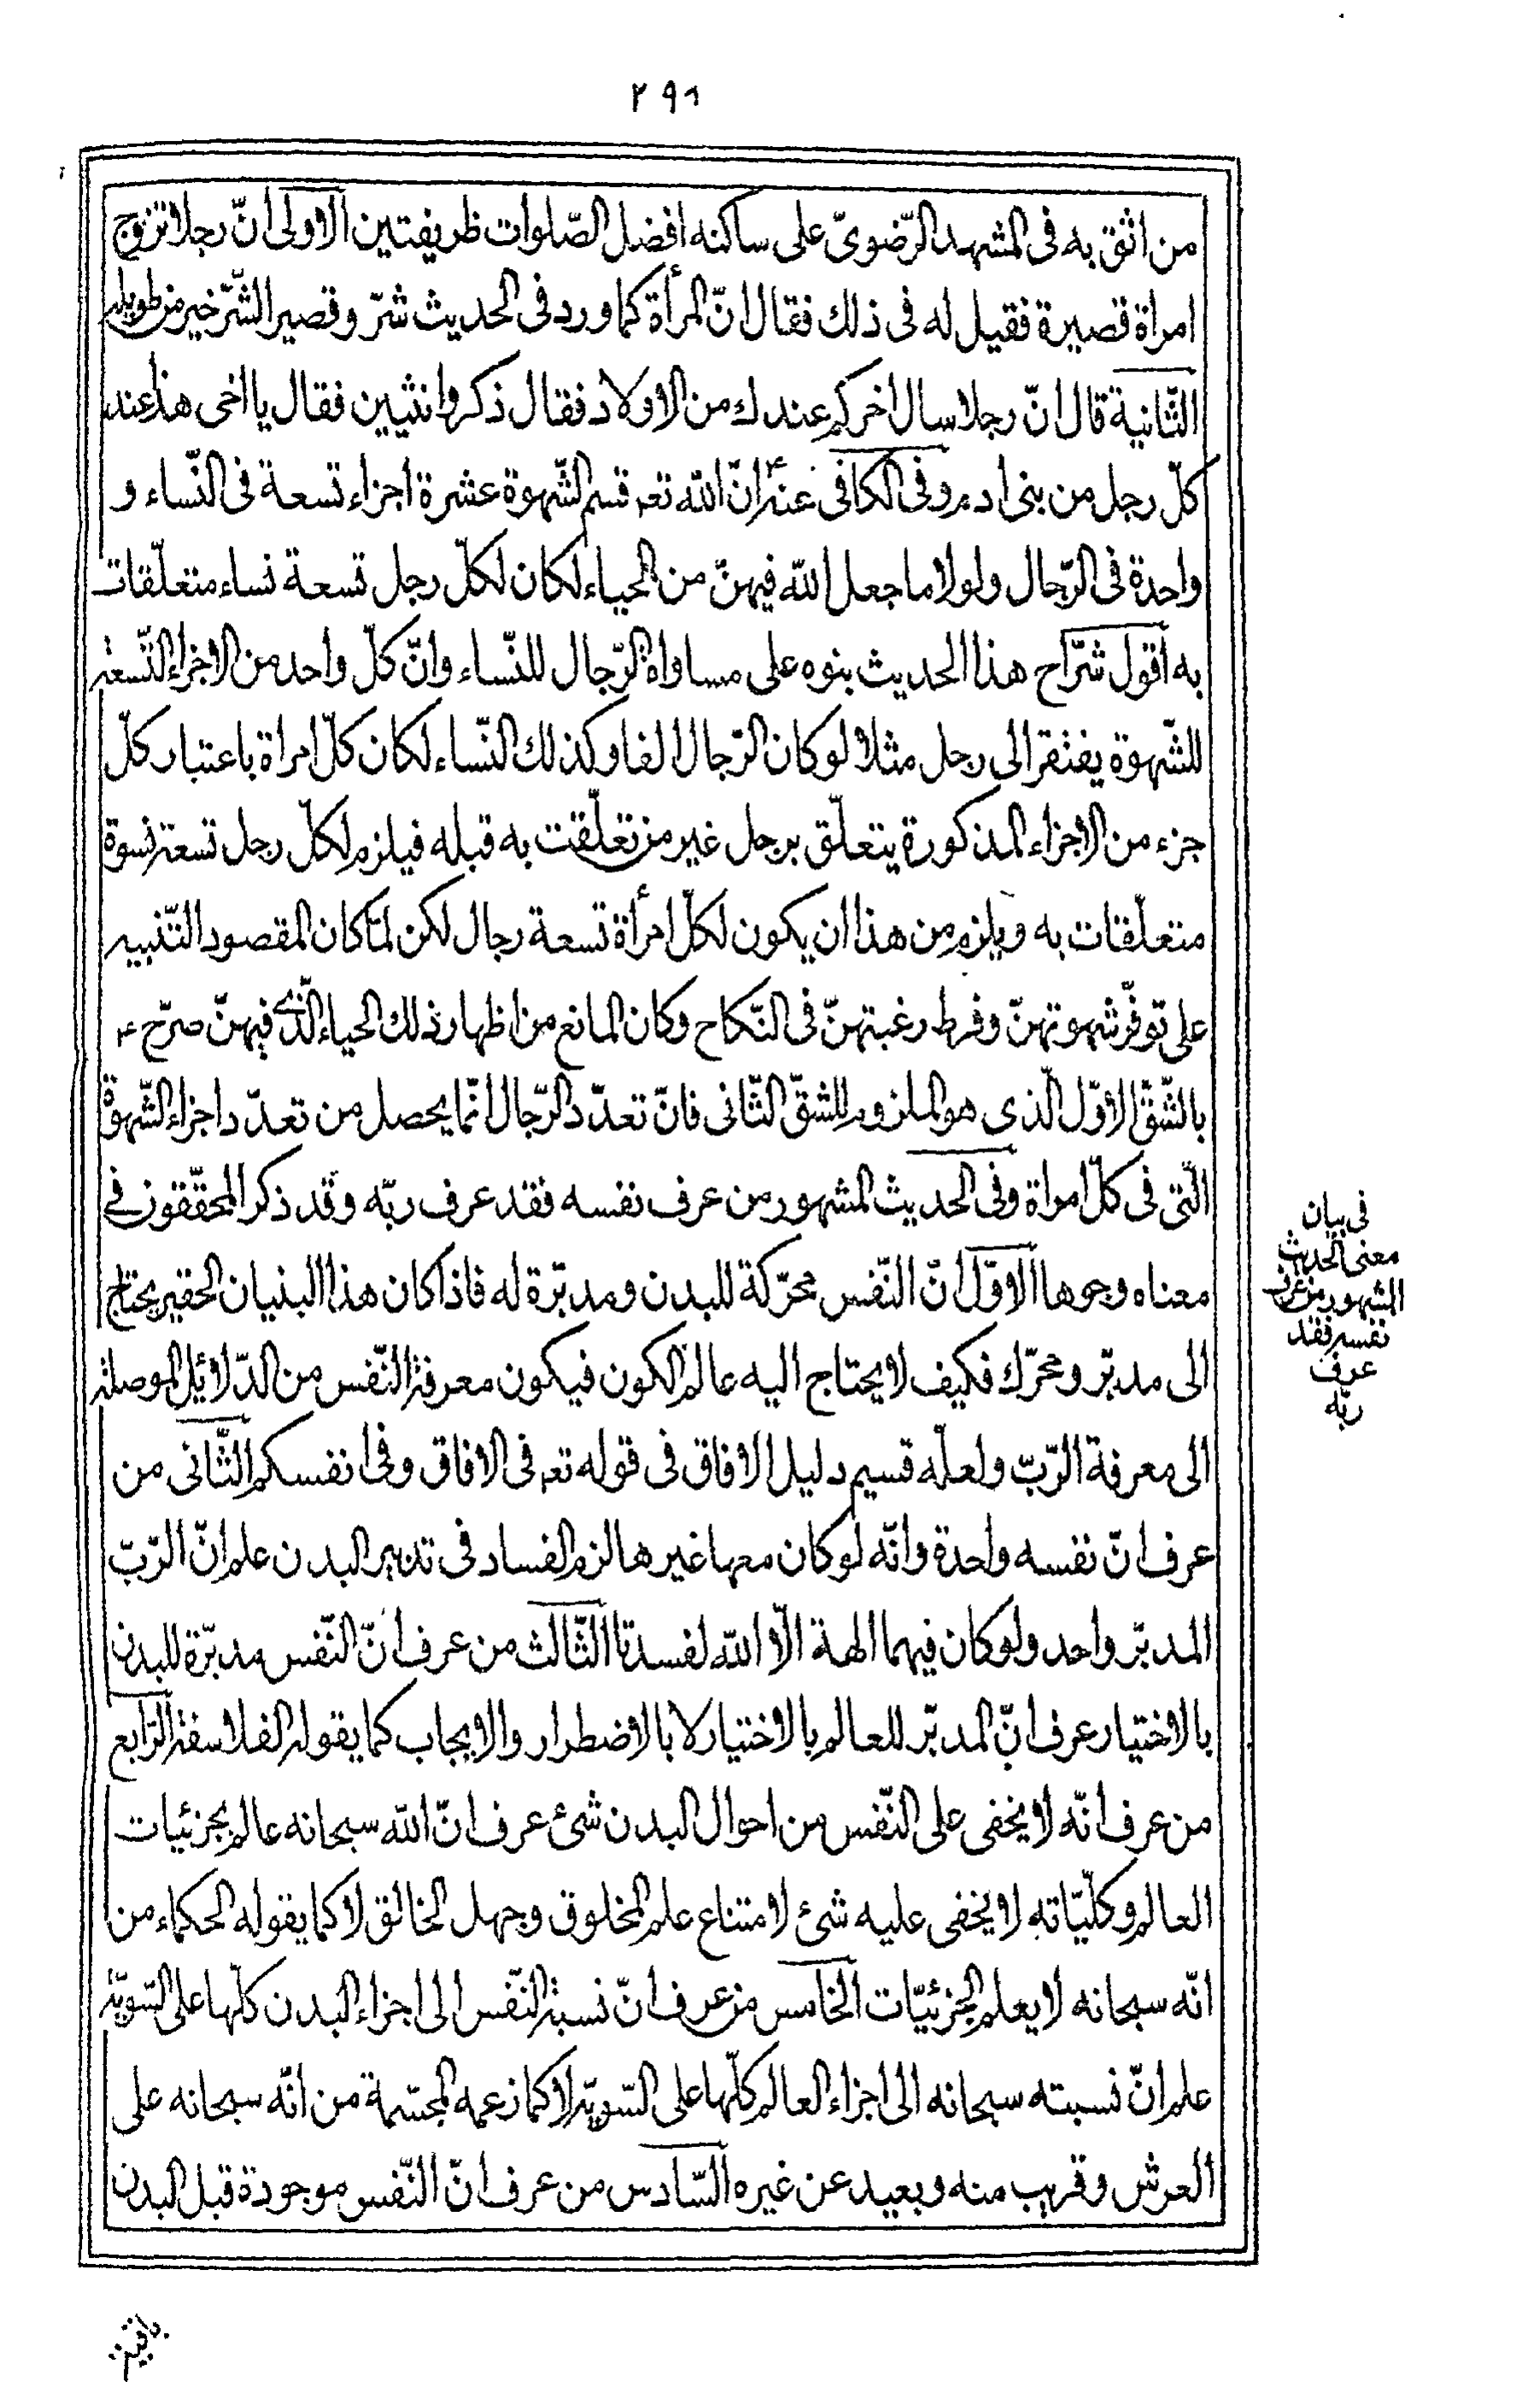 ٢٩١
من اثق به فى المشهد الرّضوىّ على ساكنه افضل الصّلوات ظريفتين الاولى انّ رجلا تزوج
امراة قصيرة فقيل له فى ذلك فقال انّ المرأة كما ورد فى الحديث شرّ وقصير الشّرّ خير من طويله
الثّانية قال انّ رجلا سال اخر كم عندك من الاولاد فقال ذكر وانثيين فقال يا اخى هذا عند
كلّ رجل من بنى ادم وفى الكافى عنه ع انّ الله تعه قسم الشّهوة عشرة اجزاء تسعة فى النّساء و
واحدة فى الرّجال ولولا ما جعل الله فيهنّ من الحياء لكان لكلّ رجل تسعة نساء متعلّقات
به اقول شرّاح هذا الحديث بنوه على مساواة الرّجال للنّساء وانّ كلّ واحد من الاجزاء التّسعة
للشّهوة يفتقر الى رجل مثلا لو كان الرّجال الفا وكذلك النّساء لكان كلّ امراة باعتبار كلّ
جزء من الاجزاء المذكورة يتعلّق برجل غير من تعلّقت به قبله فيلزم لكلّ رجل تسعة نسوة
متعلّقات به ويلزم من هذا ان يكون لكلّ امرأة تسعة رجال لكن لمّا كان المقصود التّنبيه
على توفّر شهوتهنّ وفرط رغبتهنّ فى النّكاح وكان المانع من اظهار ذلك الحياء الّذى فيهنّ صرّح ع
بالشّقّ الاوّل الّذى هو الملزوم للشقّ الثّانى فانّ تعدّد الرّجال انّما يحصل من تعدّد اجزاء الشّهوة
الّتى فى كلّ امراة وفى الحديث المشهور من عرف نفسه فقد عرف ربّه وقد ذكر المحقّقون فى
معناه وجوها الاوّل انّ النّفس محرّكة للبدن ومدبّرة له فاذا كان هذا البنيان الحقير يحتاج
الى مدبّر ومحرّك فكيف لا يحتاج اليه عالم الكون فيكون معرفة النّفس من الدّلائل الموصلة
الى معرفة الرّبّ ولعلّه قسيم دليل الافاق فى قوله تعه فى الافاق وفى انفسكم الثّانى من
عرف انّ نفسه واحدة وانّه لو كان معها غيرها لزم الفساد فى تدبير البدن علم انّ الرّبّ
المدبّر واحد ولو كان فيهما الهة الّا الله لفسدتا الثّالث من عرف انّ النّفس مدبّرة للبدن
بالاختيار عرف انّ المدبّر للعالم بالاختيار لا بالاضطرار والايجاب كما يقوله الفلاسفة الرّابع
من عرف انّه لا يخفى على النّفس من احوال البدن شئ عرف انّ الله سبحانه عالم بجزئيات
العالم وكلّيّاته لا يخفى عليه شئ لامتناع علم المخلوق وجهل الخالق لا كما يقوله الحكماء من
انّه سبحانه لا يعلم الجزئيّات الخامس من عرف انّ نسبة النّفس الى اجزاء البدن كلّها على السّويّة
علم انّ نسبته سبحانه الى اجزاء العالم كلّها على السّويّة لا كما زعمه المجسّمة من انّه سبحانه على
العرش وقريب منه وبعيد عن غيره السّادس من عرف انّ النّفس موجودة قبل البدن
فى بيان
معنى الحديث
المشهور من عرف
نفسه فقد
عرف
ربّه